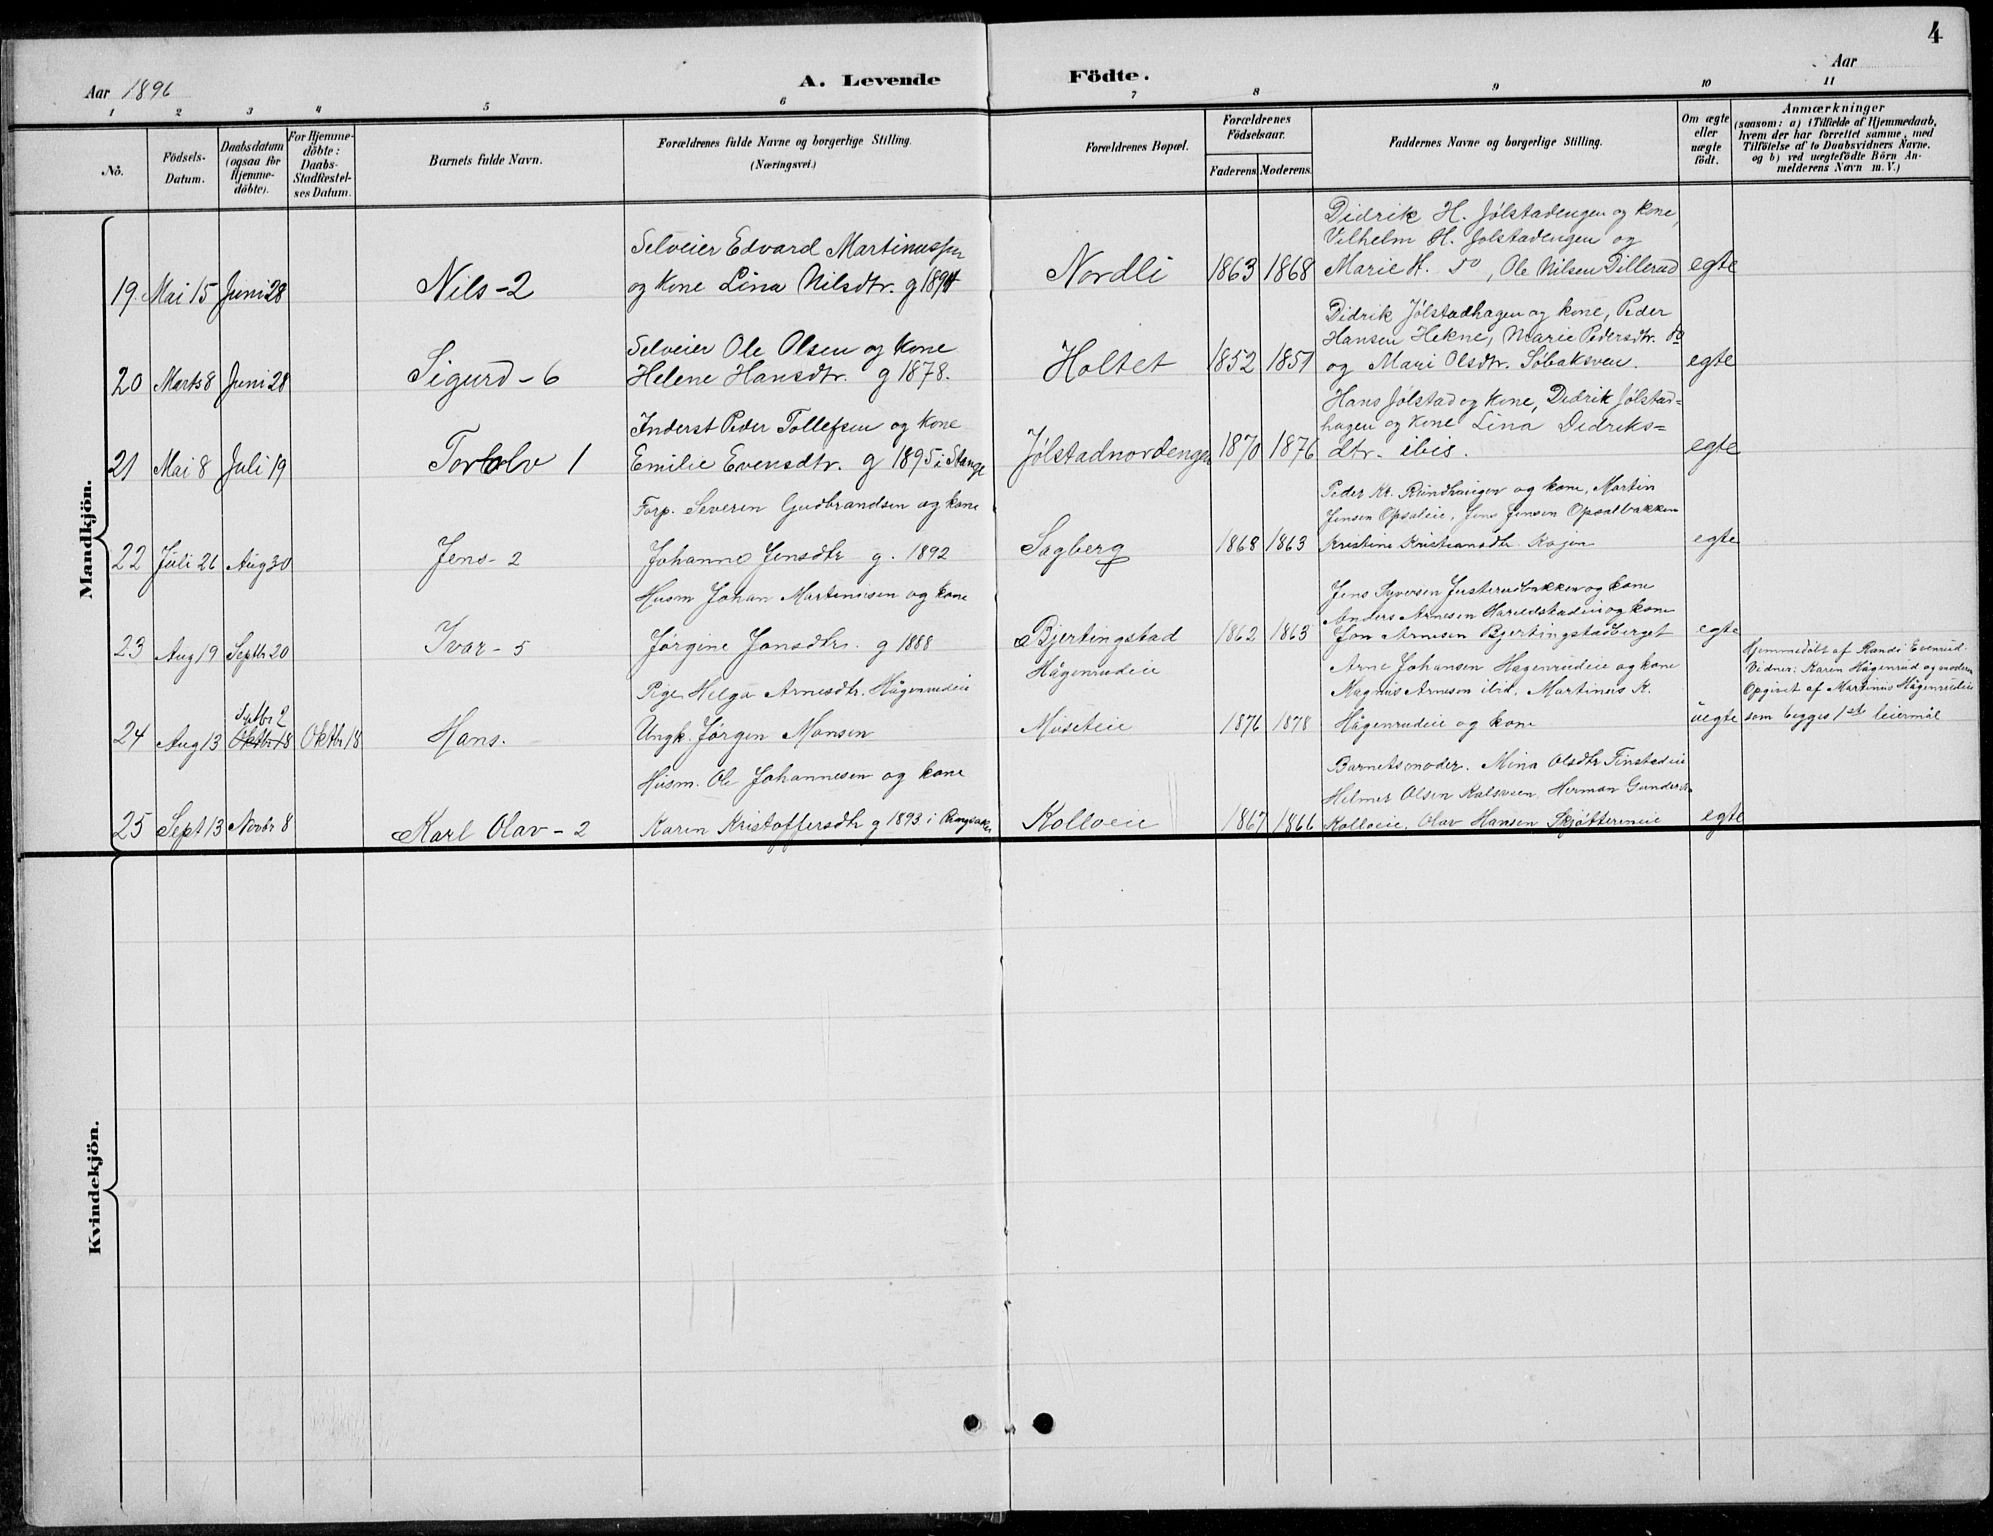 4
Aar 1896
A. Levende Födte.
Aar
1 2 3 4 5 6 7 8 9 10 11
No.
Födsels-Datum.
Daabsdatum (ogsaa för Hjemmedöbte).
For Hjemmedöbte: Daabs-Stadfæstelses Datum.
Barnets fulde Navn.
Forældrenes fulde Navne og borgerlige Stilling.
(Næringsvei.)
Forældrenes Bopæl.
Forældrenes Födselsaar.
Faderens Moderens.
Faddernes Navne og borgerlige Stilling.
Om ægte eller uægte födt.
Anmærkninger
(saasom: a) i Tilfælde af Hjemmedaab,
hvem der har forrettet samme, med
Tilföielse af to Daabsvidners Navne.
og b) ved uægtefödte Börn An-
melderens Navn m. V.)
Mandkjön.
Didrik H. Jølstadengen og kone,
Selveier Edvard Martinussen
Vilhelm H. Jolstadengen og
19. Mai 15 Juni 28 Nils - 2 og kone Lina Nilsdtr. g 1894 Nordli 1863 1868 Marie H. do, Ole Nilsen Dillerud egte
Didrik Jølstadhagen og kone, Peder
Selveier Ole Olsen og kone
Hansen Hekne, Marie Pedersdtr. do
20 Marts 8 Juni 28 Sigurd - 6 Helene Hansdtr. g 1878. Holtet 1852 1857 og Mari Olsdtr. Søbaksven. egte
Hans Jølstad og kone, Didrik Jølstad=
Inderst Peder Tollefsen og kone
hagen og kone Lina Didriks=
21 Mai 8 Juli 19 Torolv 1 Emilie Evensdtr. g 1895 i Stange Jølstadnordengen 1870 1876 dtr. ibis. egte
Peder Kr. Rundhaugen og kone, Martin
Forp. Severin Gudbrandsen og kone
Jensen Opsaleie, Jens Jensen Opsalbakken
22 Juli 26 Aug 30 Jens - 2 Johanne Jensdtr g. 1892 Sagberg 1868 1863 Kristine Kristiansdtr. egte
Husm Johan Martinisen og kone
Jens Syversen Justerudbakken og kone
Anders Arnesen og kone
23 Aug 19 Septbr 20 Ivar - 5 Jørgine Jonsdtr. g 1888 Bjertingstad 1862 1863 Jon Arnesen Bjertingstadberget egte
Pige Helga Arnesdtr. Hågenrudeie
Hågenrudeie
Arne Johansen Hagenrudeie og kone
Magnus Arnesen ibid. Martinus K.
24 Aug 13 Septbr 2 Oktbr 18 Oktbr 18 Hans. Ungk. Jørgen Monsen Museteie 1876 1878 Hågenrudeie og kone uegte
Hjemmedøbt af Randi Evenrud.
Vidner: Karen Hågenrud og moderen
Opgivet af Martinus Hågenrudeie
som begges 1ste leiermål
Husm. Ole Johannesen og kone
Barnets moder. Mina Olsdtr Tinstadeie
Helmer Olsen Herman
25 Sept 13 Novbr 8 Karl Olav - 2 Karen Kristoffersdtr g 1893 i Ringsaker Kolloeie 1867 1866 Kolloeie, Olav Hansen Skjøttereneie egte
Kvindekjön.